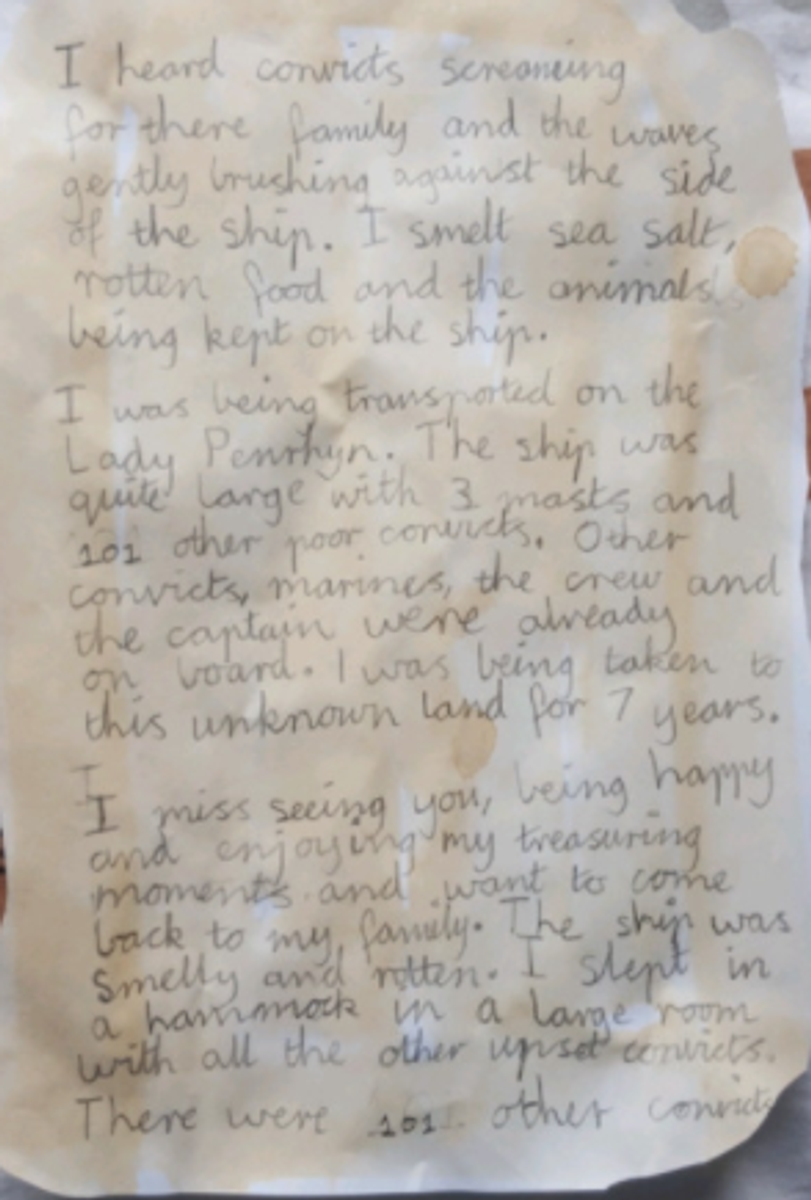 I heard convicts screameing
for there family and the waves
gently brushing against the side
of the ship. I smelt sea salt,
rotten food and the animals
being kept on the ship.
I was being transported on the
Lady Penrhyn. The ship was
quite large with 3 masts and
101 other poor convicts. Other
convicts, marines, the crew and
the captain were already
on board. I was being taken to
this unknown land for 7 years.
I
I miss seeing you, being happy
and enjoying my treasuring
moments and want to come
back to my family. The ship was
smelly and rotten. I slept in
a hammock in a large room
with all the other upset convicts.
There were 101 other convicts